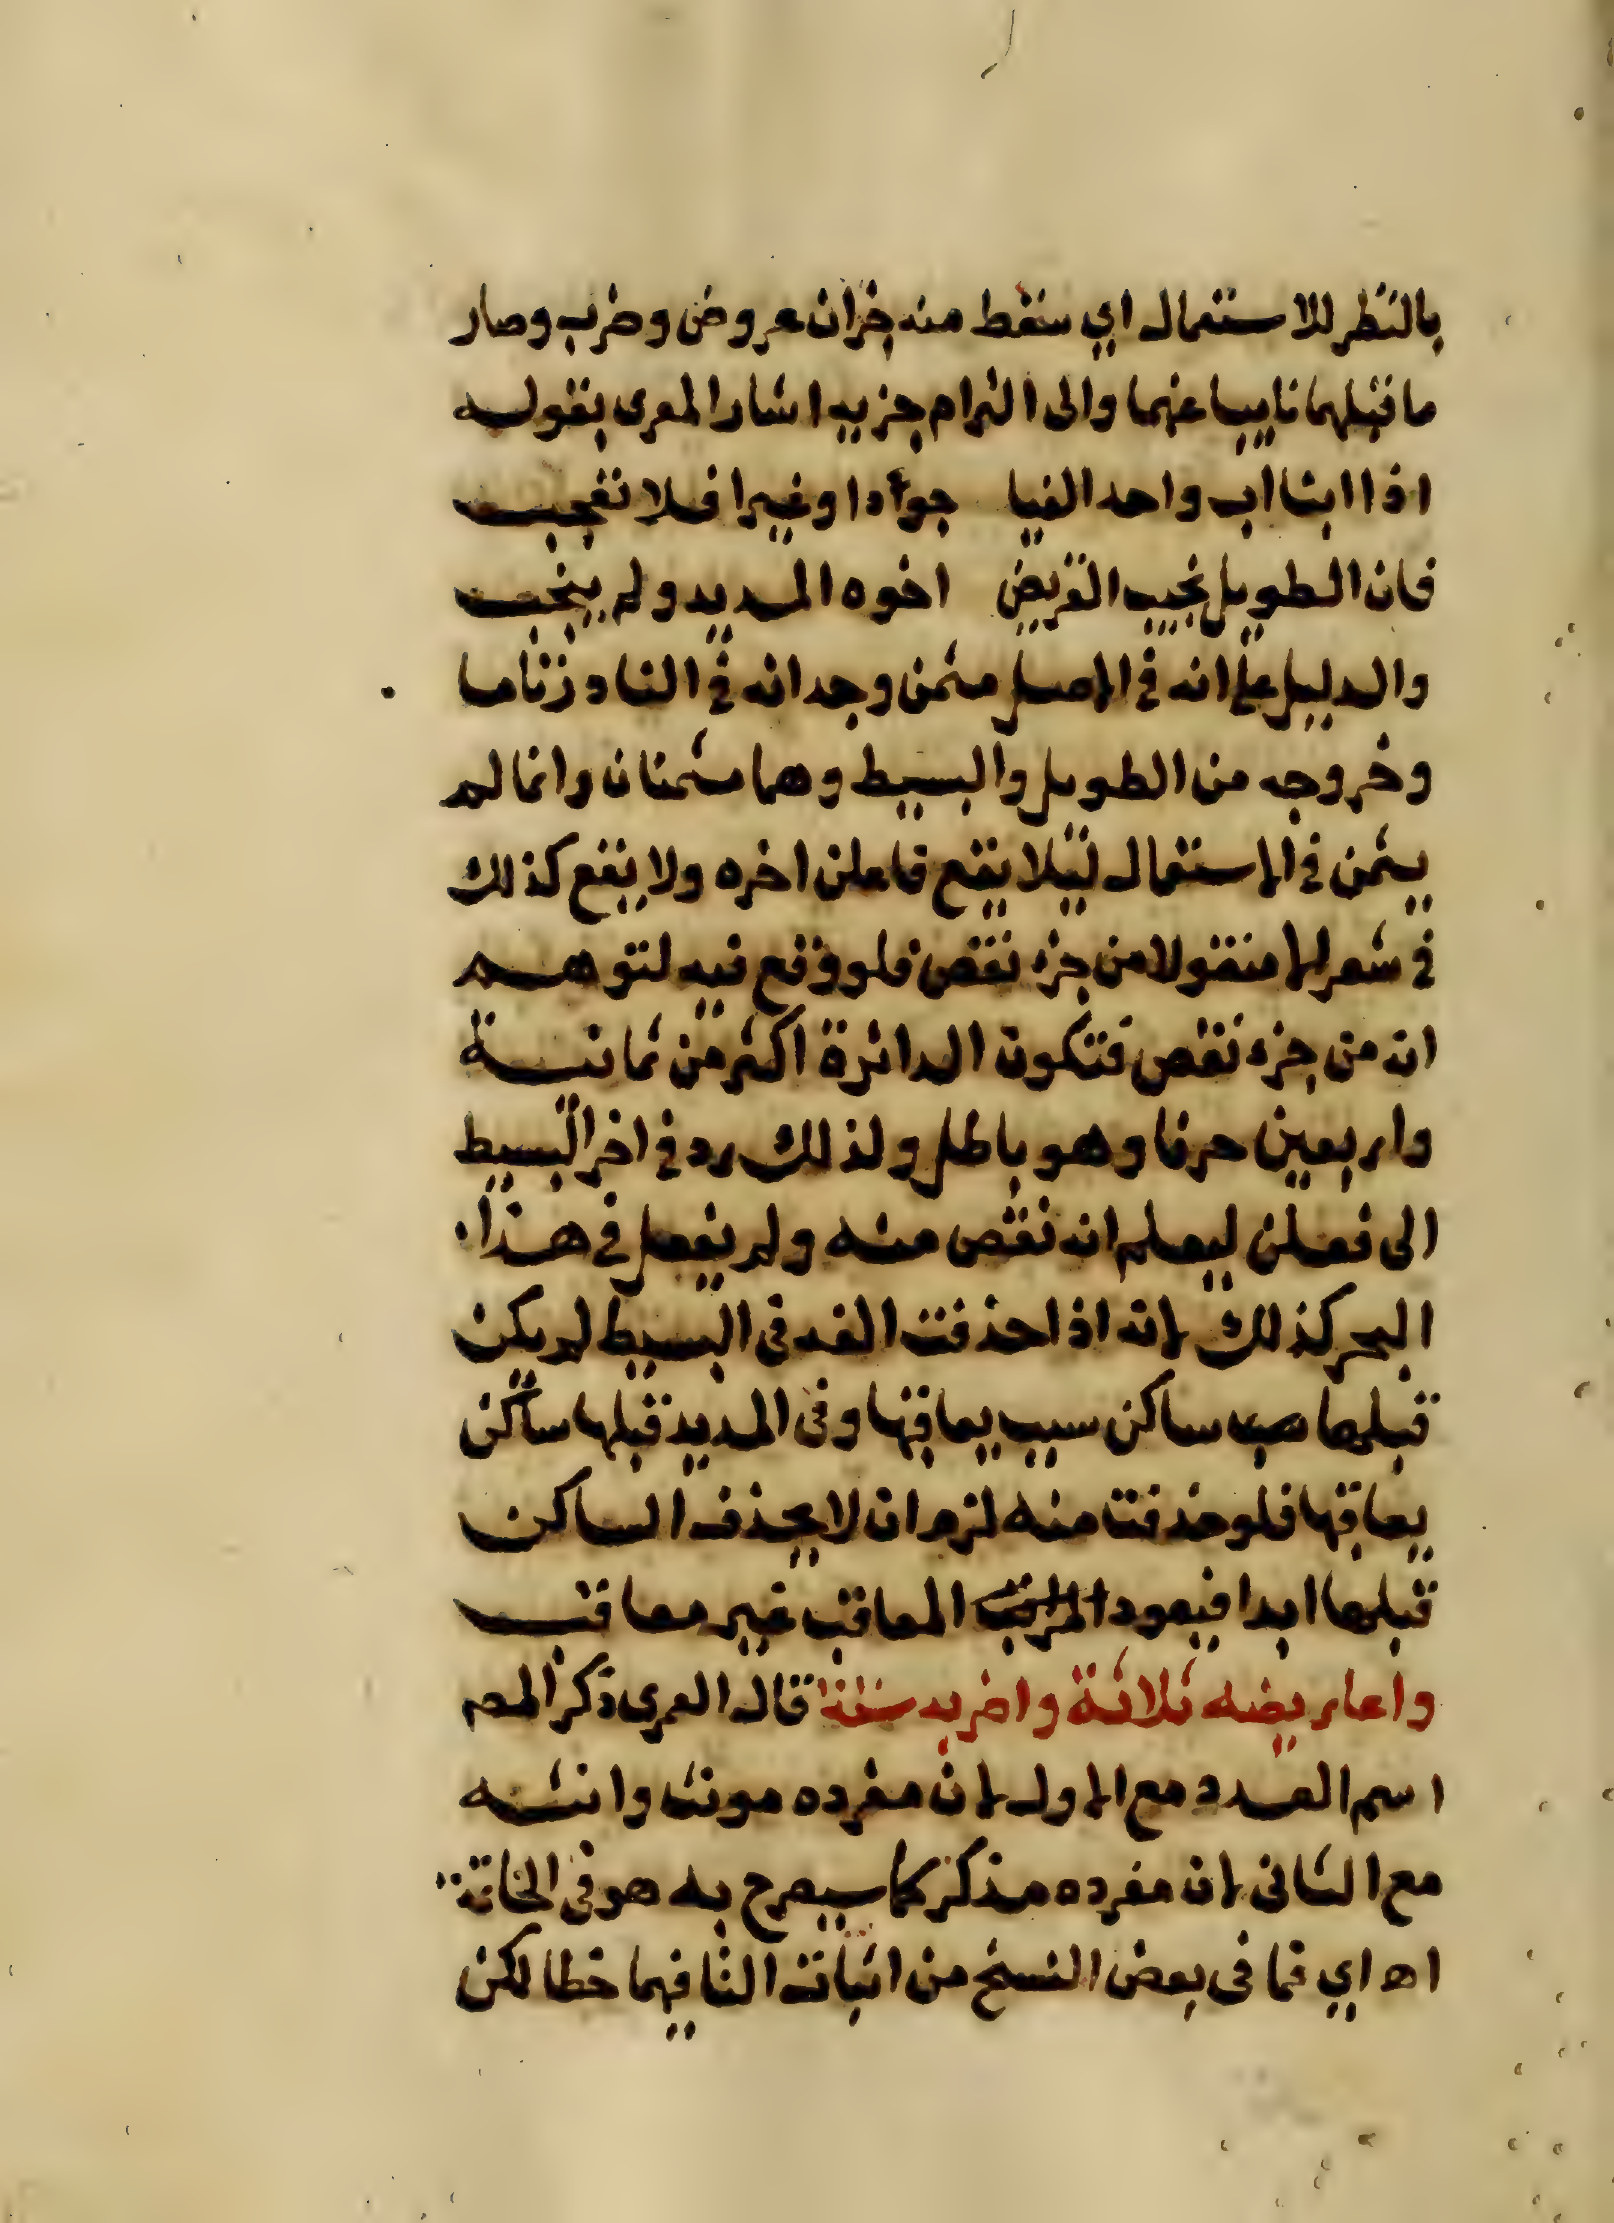 بالنظر للاستعمال اي سقط منه جزان عروض وضرب وصار
ما قبلهما نايبا عنهما والى التزام جزيه اشار المعرى بقوله
اذا ابنا اب واحد الفيا جوادا وغيرا فلا تعجب
فان الطويل نجيب القريض اخوه المديد ولم ينجب
والدليل على انه في الاصل مثمن وجدانه في النادر تاما
وخروجه من الطويل والبسيط وهما مثمنان وانما لم
يثمن في الاستعمال ليلا يقع فاعلن اخره ولا يقع كذلك
في شعر الا منقولا من جزء نقص فلو وقع فيه لتوهم
انه من جزء نقص فتكون الدائرة اكثر من ثمانية
واربعين حرفا وهو باطل ولذلك رد في اخر البسيط
الى فعلن ليعلم انه نقص منه ولم يفعل في هذا
البحر كذلك لانه اذا حذفت الفه في البسيط لم يكن
قبلها ساكن سبب يعاقبها وفى المديد قبلها ساكن
يعاقبها فلو حذفت منه لزم ان لا يحذف الساكن
قبلها ابدا فيعود المعاقب غير معاقب
واعاريضه ثلاثة واضربه ستة قال الغمرى ذكر المصر
اسم العدد مع الاول لان مفرده مونث وانثه
مع الثانى لان مفرده مذكر كما سيصرح به هو فى الخاتمة
اه اي فما فى بعض النسخ من اثبات التا فيهما خطا لكن